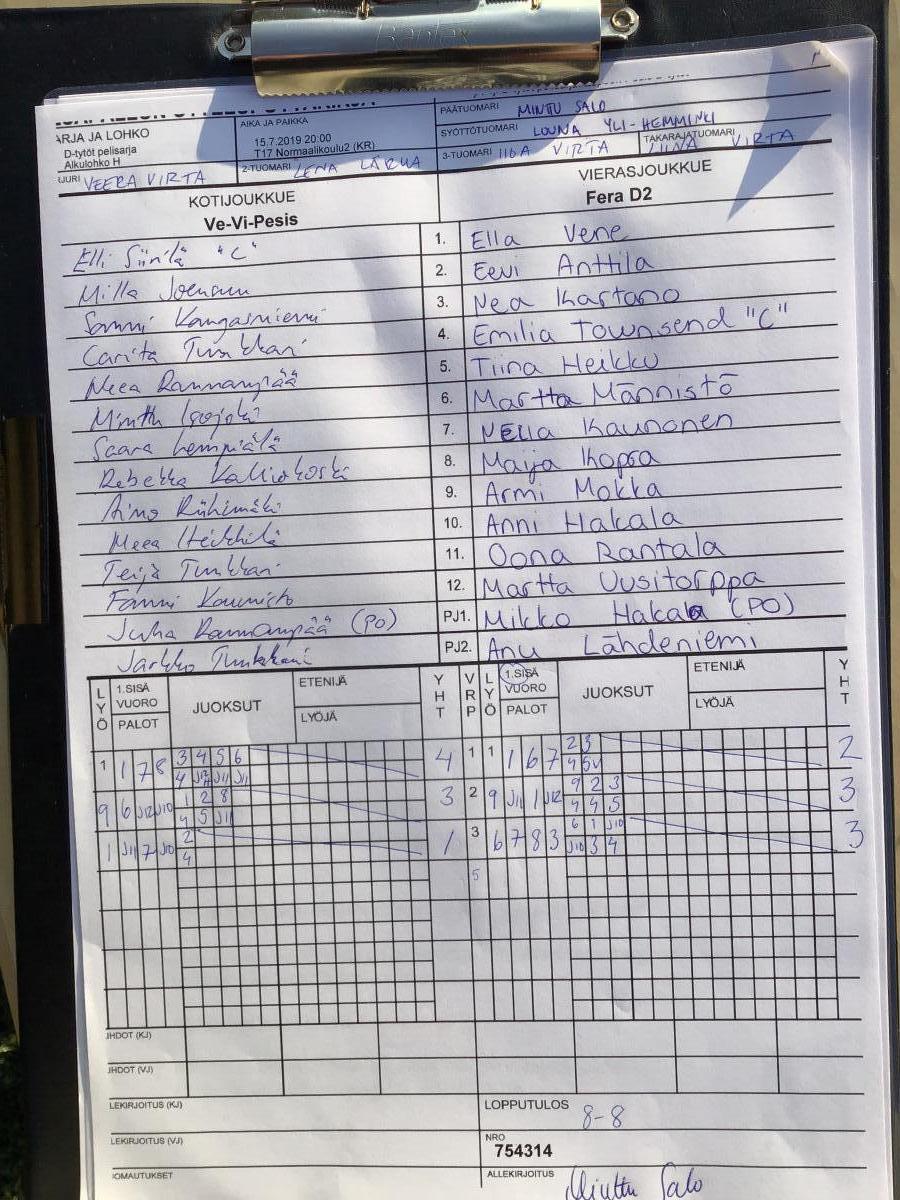 Rantex
ARJA JA LOHKO
D-tytöt pelisarja
Alkulohko H
AIKA JA PAIKKA
15.7.2019 20:00
T17 Normaalikoulu2 (KR)
PÄÄTUOMARI MINTTU SALO
SYÖTTÖTUOMARI LOUNA YLI-HEMMINKI
JURI VEERA VIRTA 2-TUOMARI LENA 3-TUOMARI IIDA VIRTA TAKARAJATUOMARI VIRTA
KOTIJOUKKUE VIERASJOUKKUE
Ve-Vi-Pesis Fera D2
Elli Siirilä "C" 1. Ella Vene
Milla Joensuu 2. Eevi Anttila
Sanni Kangasniemi 3. Nea Kartano
Carita Tunkkari 4. Emilia Townsend "C"
Neea Rannanpää 5. Tiina Heikku
Minttu 6. Martta Männistö
Saara Lempiälä 7. Nella Kaunonen
Rebekka Kalliokoski 8. Maija Kopsa
Aino Riihimäki 9. Armi Mokka
Neea Heikkilä 10. Anni Hakala
Teija Tunkkari 11. Oona Rantala
Fanni Kaunisto 12. Martta Uusitorppa
Juha Rannanpää (PO) PJ1. Mikko Hakala (PO)
Jarkko Tunkkari PJ2. Anu Lähdeniemi
LYÖ 1.SISÄ VUORO PALOT JUOKSUT ETENIJÄ LYÖJÄ YHT VRP LYÖ 1.SISÄ VUORO PALOT JUOKSUT ETENIJÄ LYÖJÄ YHT
3 4 5 6 2 3
1 1 7 8 4 1 1 1 6 7 2
4 J12 J11 J11 4 5V
1 2 8 9 2 3
9 6 J12 J10 3 2 9 J11 1 J12 3
4 5 J11 4 4 5
2 6 1 J10
1 J11 7 J10 1 3 6 7 8 3 3
4 J10 3 4
5
JHDOT (KJ)
JHDOT (VJ)
LEKIRJOITUS (KJ) LOPPUTULOS 8-8
LEKIRJOITUS (VJ) NRO
754314
OMAUTUKSET ALLEKIRJOITUS Minttu Salo